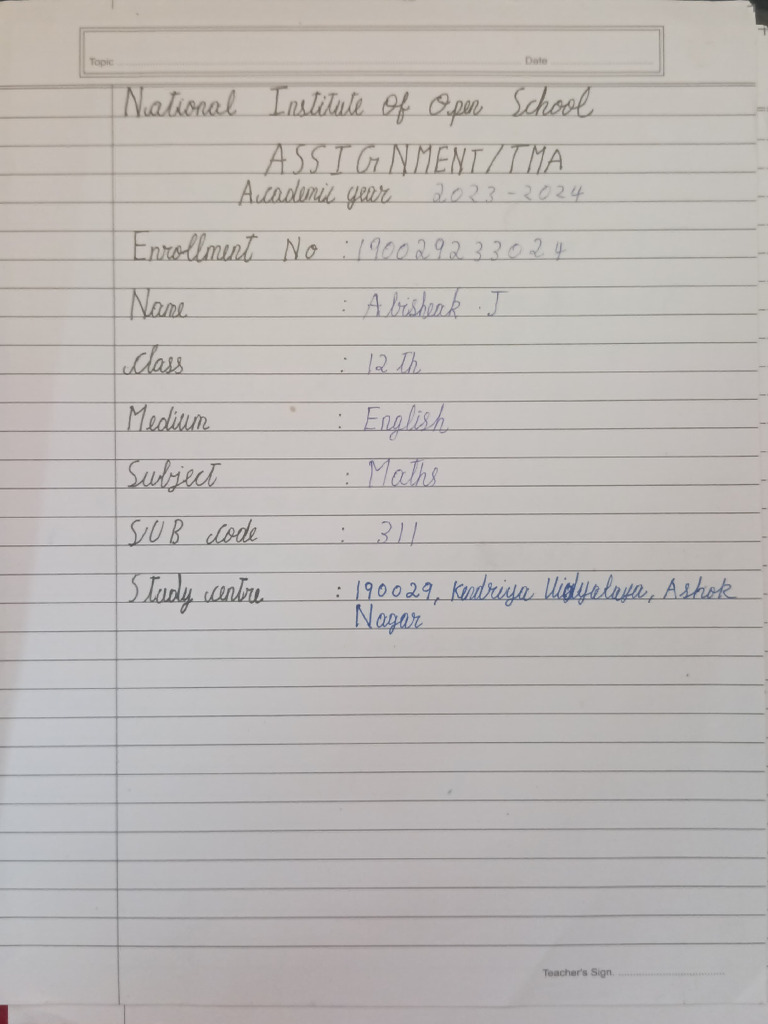 Topic
Date
National Institute Of Open School
ASSIGNMENT/TMA
Academic year 2023-2024
Enrollment No : 190029233024
Name : Abisheak .J
Class : 12 th
Medium : English
Subject : Maths
SUB code : 311
Study centre : 190029, Kendriya Vidyalaya, Ashok
Nagar
Teacher's Sign.